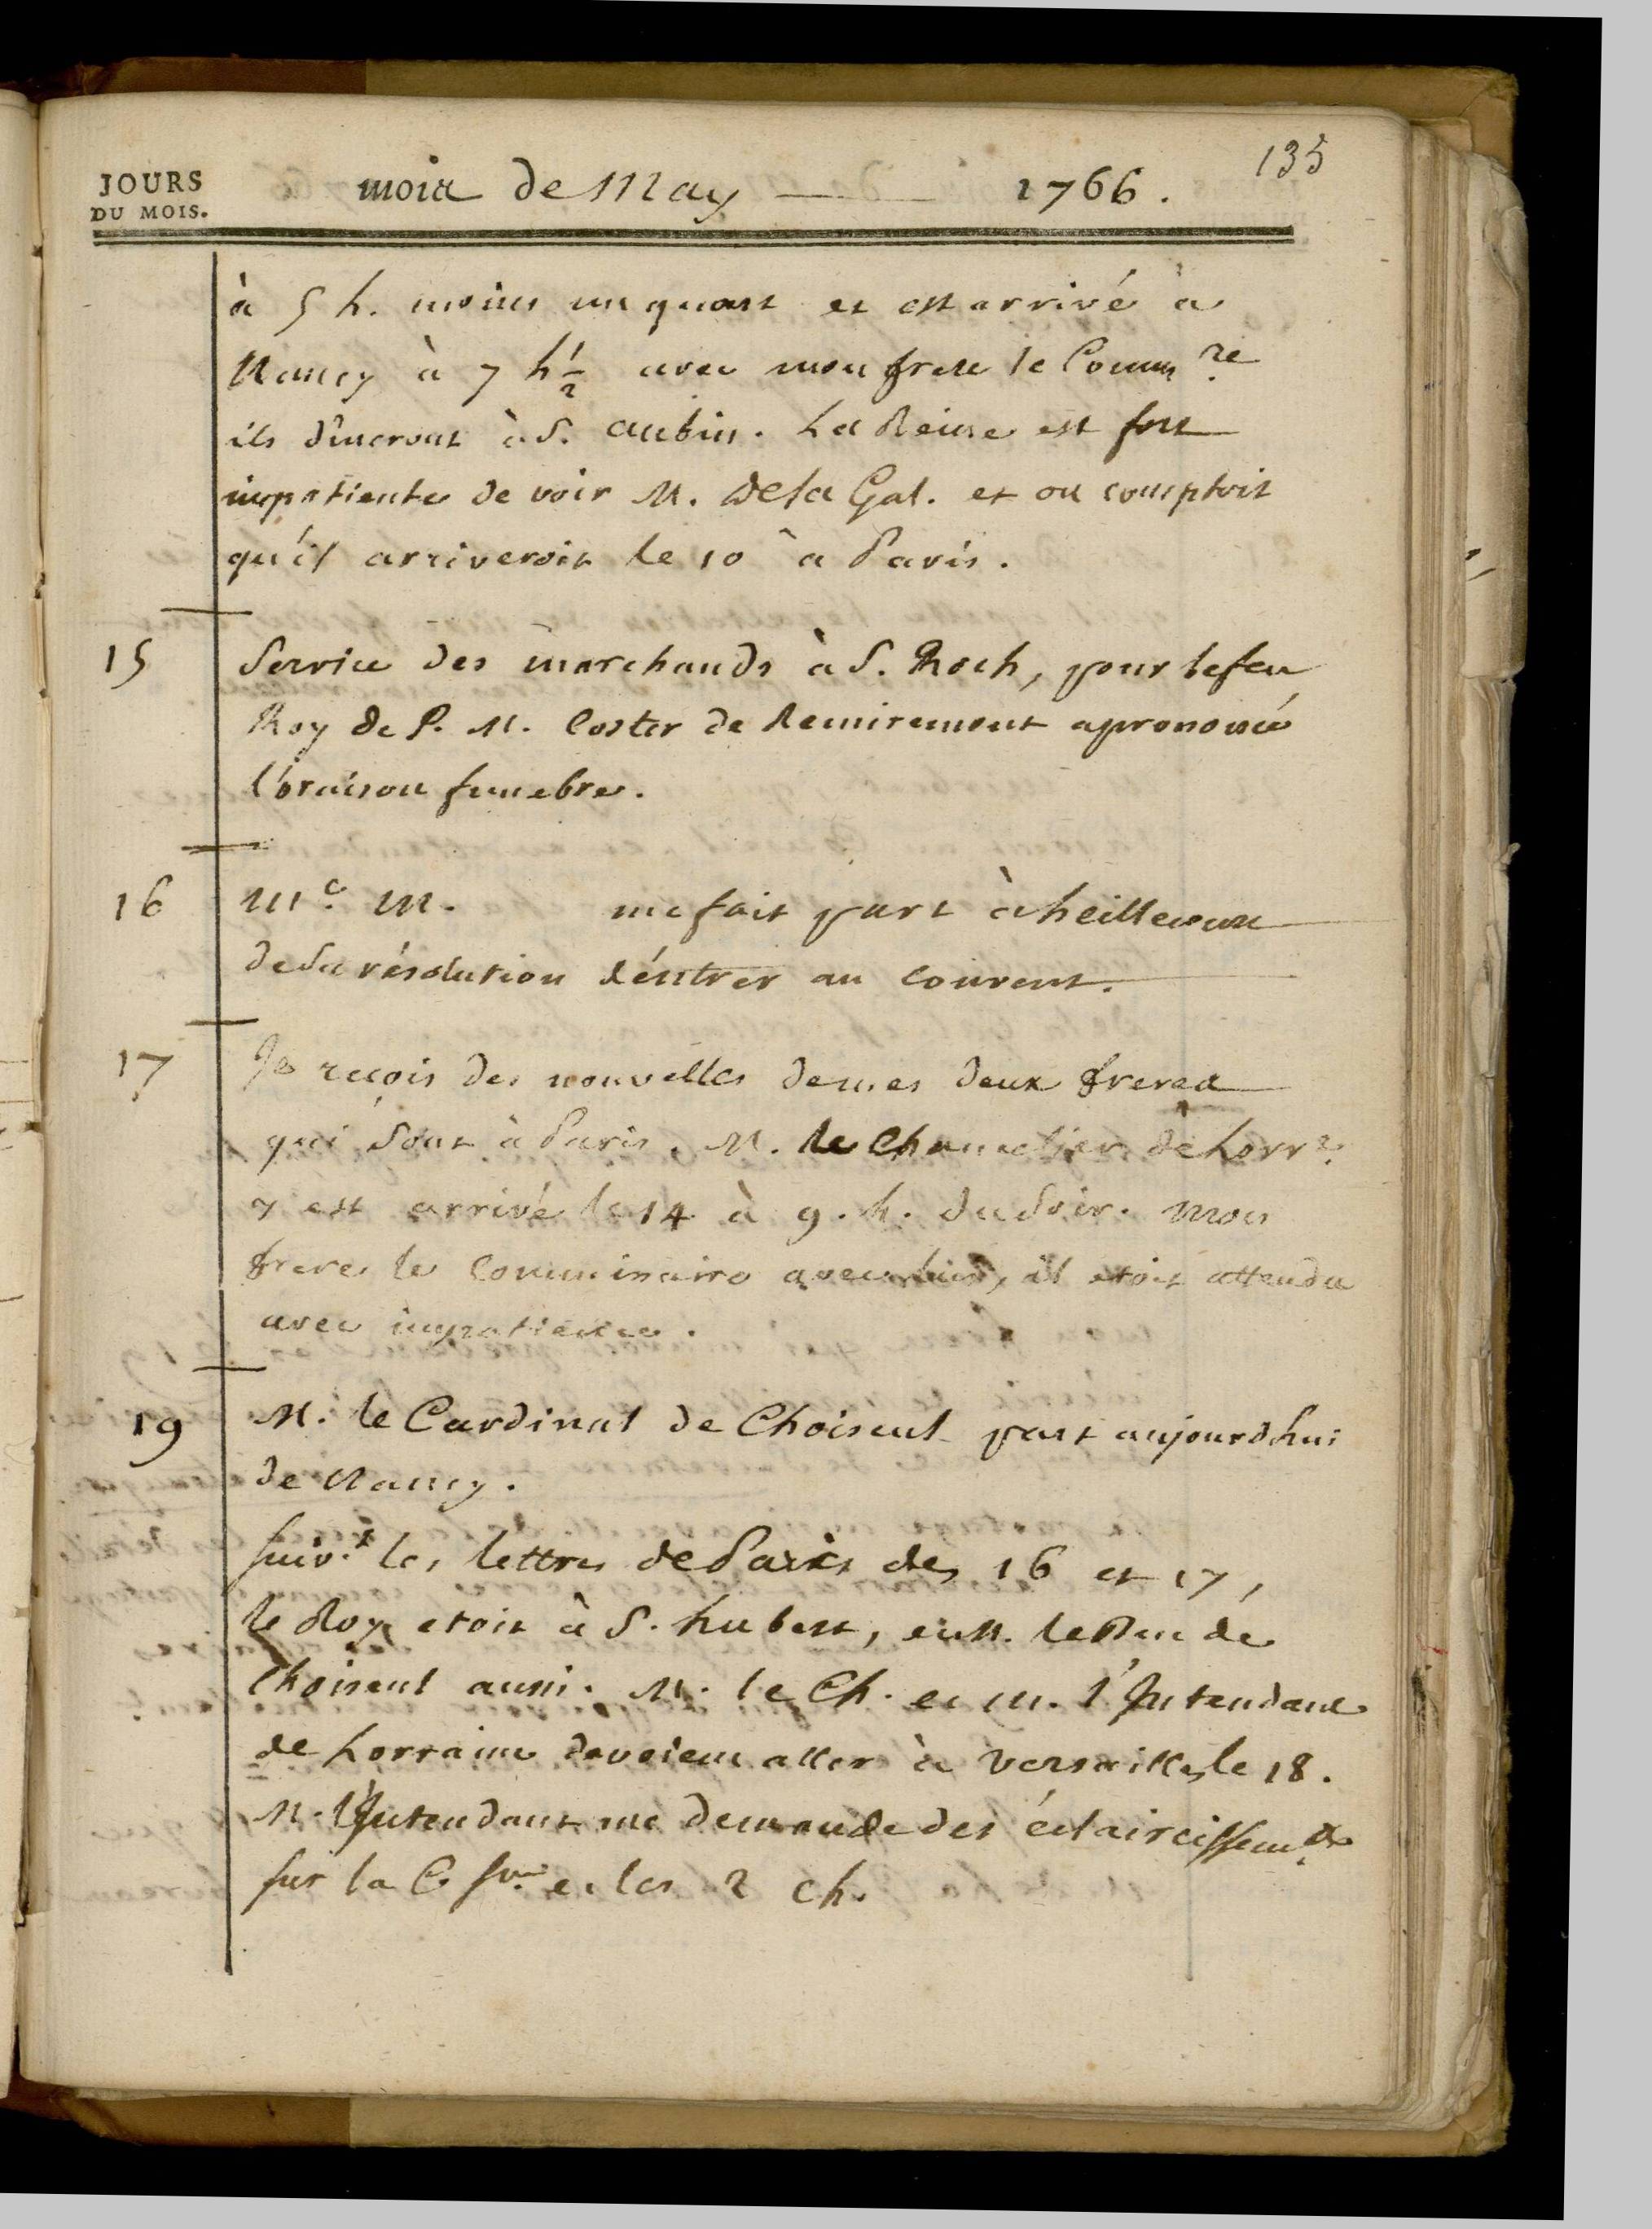 135
JOURS
DU MOIS.
mois de May 1766.
à 5 h. moins un quart et est arrivé a
Nancy à 7 h 1/2 avec mon frere le Comm.re
ils dineront à S. Aubin. La Reine est fort
impatiente de voir M. de la Gal. et on comptoit
qu'il arriveroit le 10 a Paris.
15 Service des marchands à S. Roch, pour le feu
Roy de P. M. Coster de Remiremont a prononcé
l'oraison funebre.
16 M.e M. me fait part à heillecourt
de sa résolution d'entrer au couvent.
17 Je reçois des nouvelles de mes deux freres
qui sont à Paris. M. le Chancelier de Lorr.e
y est arrivé le 14 à 9. h. du soir. Mon
frere le Commissaire avec lui, il etoit attendu
avec impatience.
19 M. le Cardinal de Choiseul part aujourdhui
de Nancy.
suiv.t les lettres de Paris des 16 et 17,
le Roy etoit à S. hubert, et M. le Duc de
Choiseul aussi. M. le Ch. et M. l'Intendant
de Lorraine devoient aller à Versailles le 18.
M. l'Intendant me demande des éclaircissem.ts
sur la C. et les 2 ch.